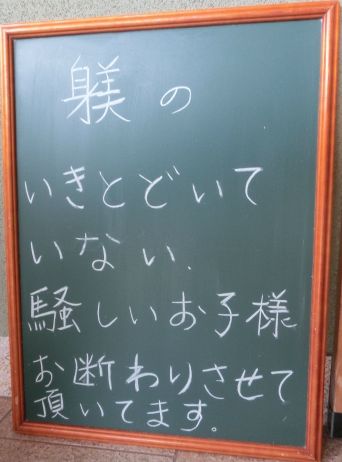 躾の
いきとどいて
いない、
騒しいお子様
お断わりさせて
頂いてます。